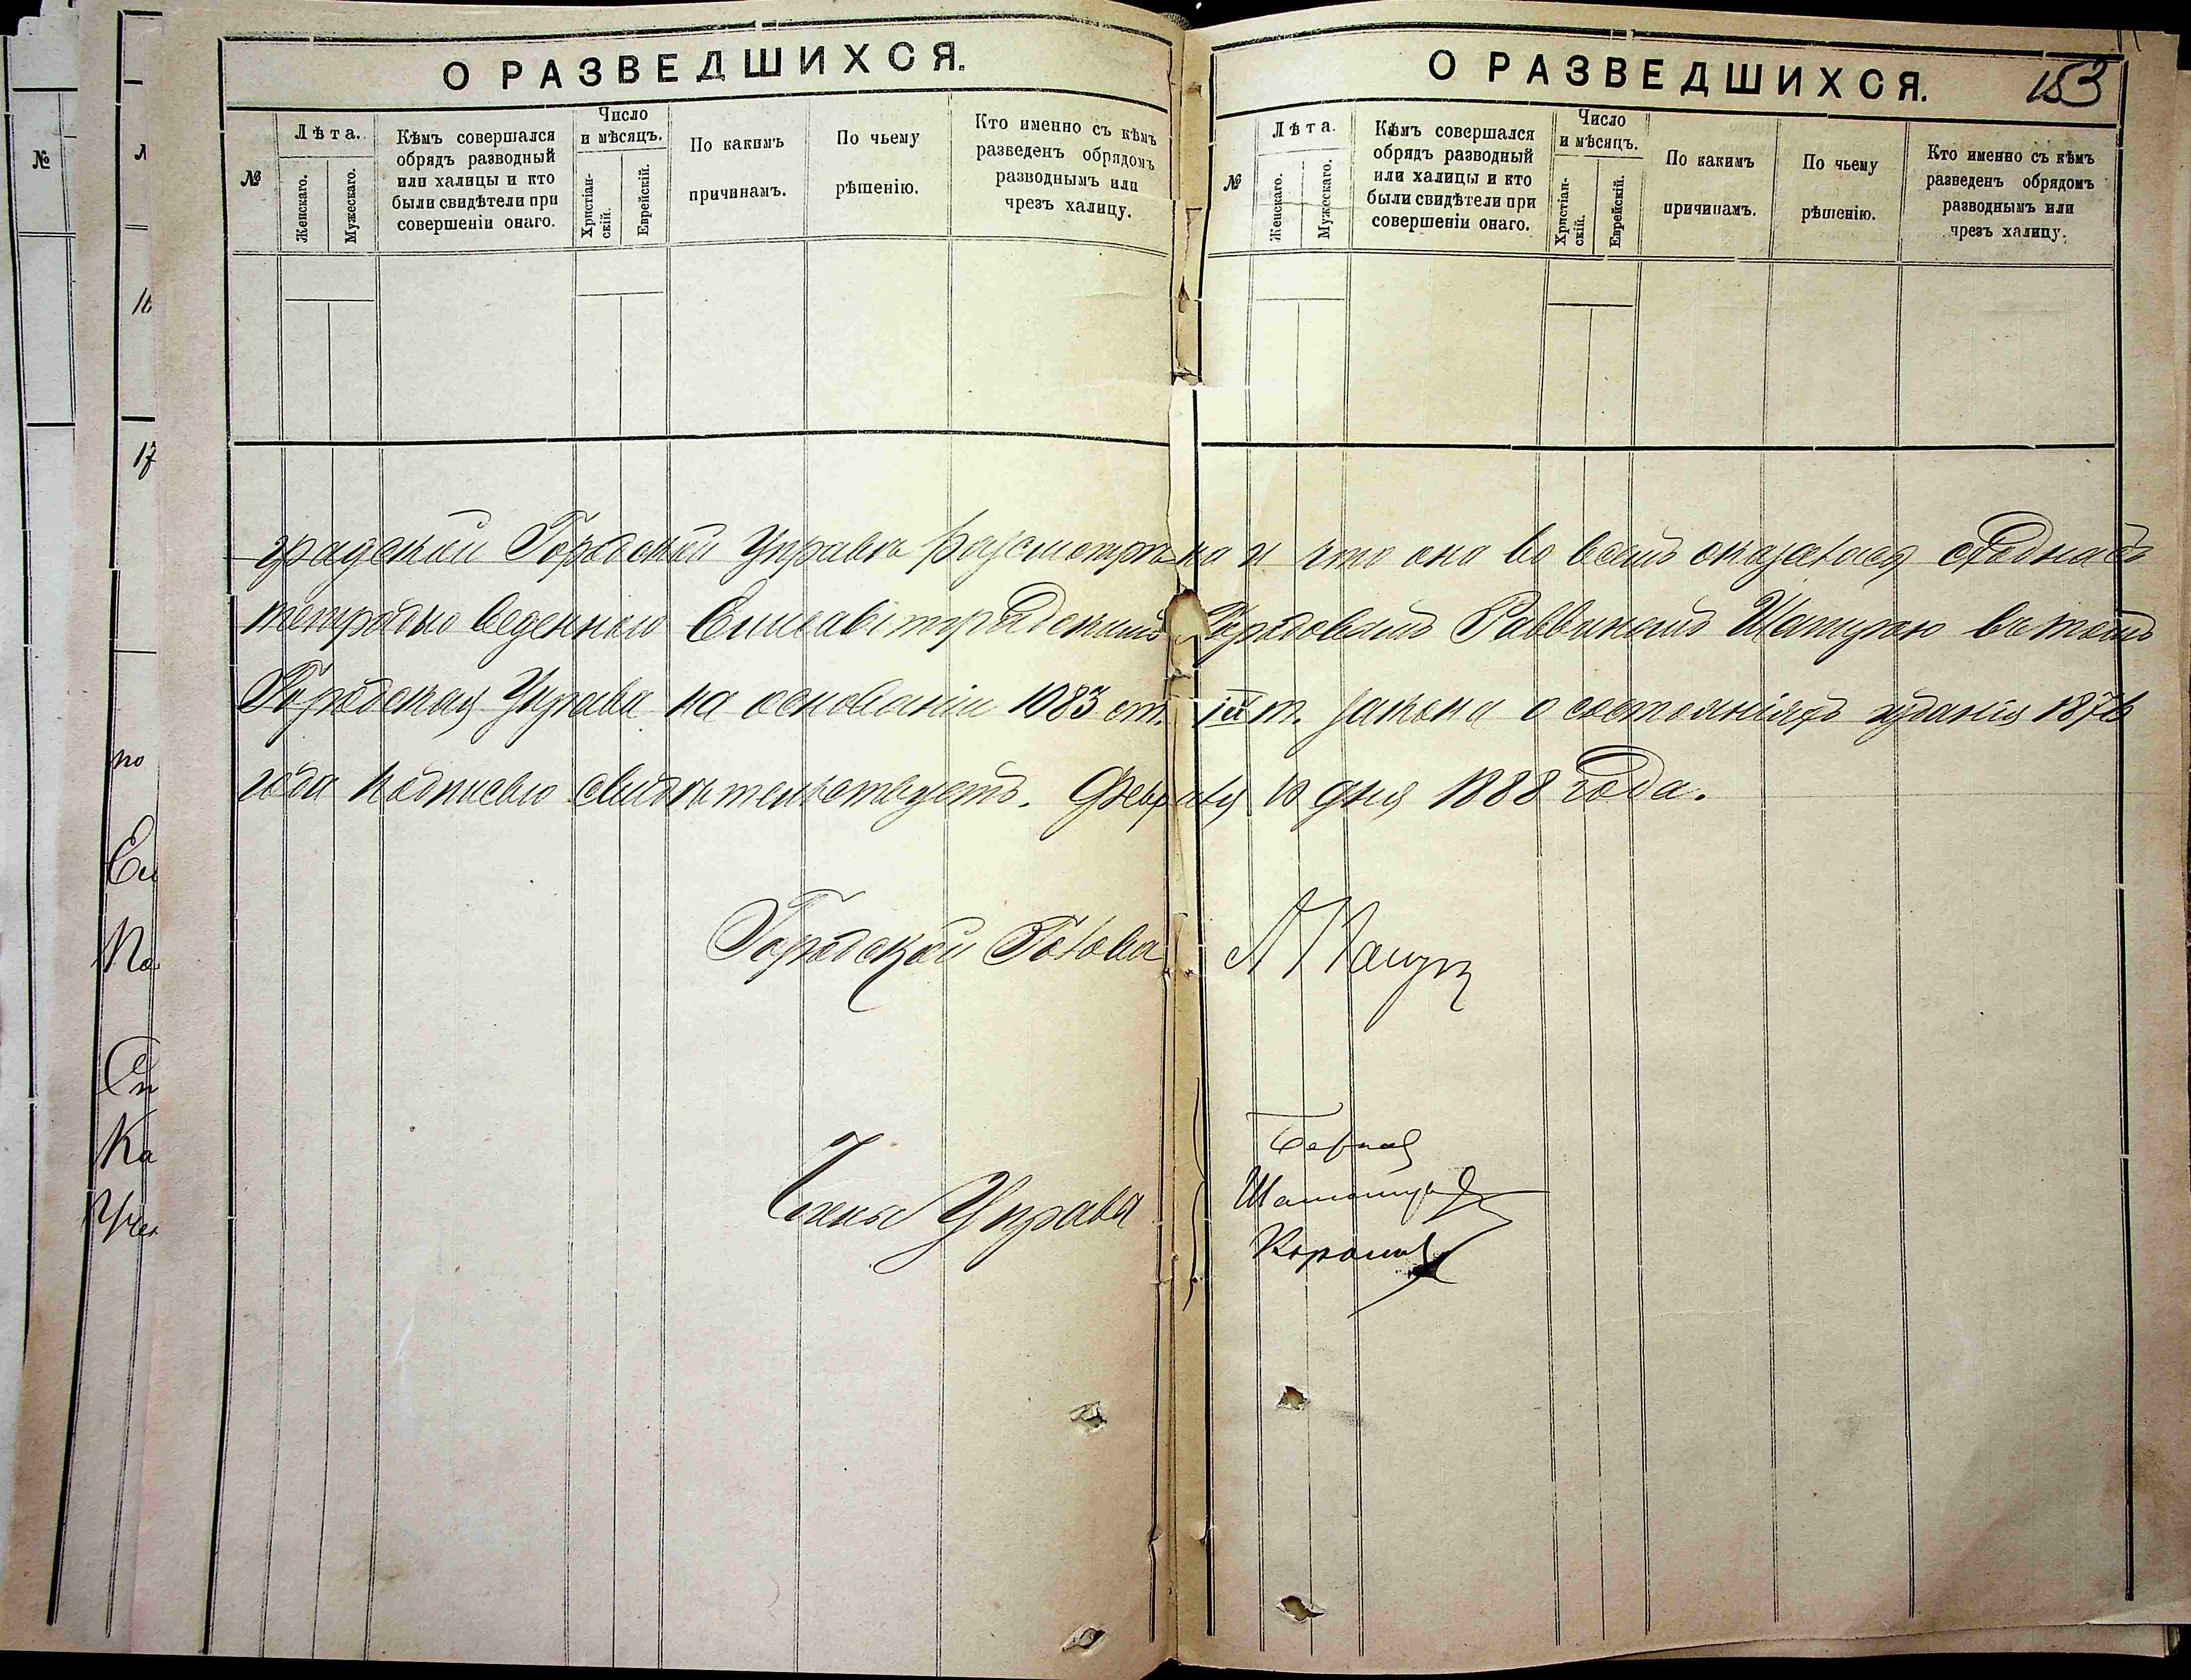 О РАЗВЕДШИХСЯ.
№
Лѣта.
Женскаго.
Мужескаго.
Кѣмъ совершался
обрядъ разводный
или халицы и кто
были свидѣтели при
совершеніи онаго.
Число
и мѣсяцъ.
Христіан-
скій.
Еврейскій.
По какимъ
причинамъ.
По чьему
рѣшенію.
Кто именно съ кѣмъ
разведенъ обрядомъ
разводнымъ или
чрезъ халицу.
О РАЗВЕДШИХСЯ.
153
№
Лѣта.
Женскаго.
Мужескаго.
Кѣмъ совершался
обрядъ разводный
или халицы и кто
были свидѣтели при
совершеніи онаго.
Число
и мѣсяцъ.
Христіан-
скій.
Еврейскій.
По какимъ
причинамъ.
По чьему
рѣшенію.
Кто именно съ кѣмъ
разведенъ обрядомъ
разводнымъ или
чрезъ халицу.
градской Городской Управѣ разсмотрѣна и что она во всемъ оказалась сходна съ
тетрадью веденною Елисаветградскимъ Городовымъ Раввиномъ въ томъ
Городская Управа на основаніи 1083 ст. IX т. закона о состояніяхъ изданія 1876
года подписью свидѣтельствуетъ. Февраля дня 1888 года.
Городской Голова
Члены Управы
№
16
17
по